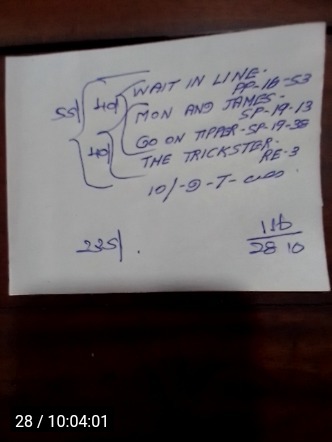 WAIT IN LINE.
PP-16-53
55/ 40/ MON AND JAMES.
SP-19-13
40/ GO ON TIPPER-SP-19-38
THE TRICKSTER.
RE-3
10/-D-T-
225/.
116
28 10
28 / 10:04:01